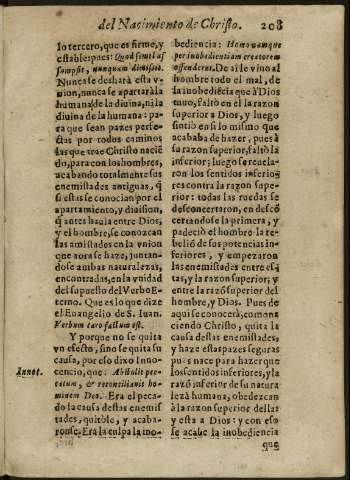 del Nacimiento de Christo. 208
lo tercero, que es firme, y
estable: pues: Quod semel as
sumpsit, nunquam dimisit.
Nunca se deshará esta v
nion, nunca se apartarà la
humana, de la diuina, ni la
diuina de la humana: pa-
ra que sean pazes perfe-
ctas por todos caminos
las que trae Christo nacie
do, para con los hombres,
acabando totalmente sus
enemistades antiguas, q̃
si estas se conocian por el
apartamiento, y diuision,
q̃ antes hauia entre Dios,
y el hombre, se conozcan
las amistades en la vnion
que aora se haze, juntan-
dose ambas naturalezas,
encontradas, en la vnidad
del supuesto del Verbo E-
terno. Que es lo que dize
el Euangelio de S. Iuan.
Verbum caro factum est.
Y porque no se quita
vn efecto, sino se quita su
causa, por eso dixo Inno-
cencio, que: Abstulit pec-
catum, & reconcilianit ho-
minem Deo. Era el peca-
do la causa destas enemis
tades, quitòle, y acaba-
ronse. Era la culpa la ino-
Innot.
bediencia: Homo namque
per inobedientiam creatorem
offenderat. De aì le vino al
hombre todo el mal, de
la inobediẽcia que à Dios
tuuo, faltò en el la razon
superior a Dios, y luego
sintiò en si lo mismo que
acababa de hazer, pues à
su razon superior, faltò la
inferior; luego se reuela-
ron los sentidos inferio-
res contra la razon supe-
rior: todas las ruedas se
desconcertaron, en descõ
certandose la primera, y
padeciò el hombre la re-
beliõ de sus potencias in-
feriores, y empezaron
las enemistades entre es-
tas, y la razon superior; y
entre la razõ superior del
hombre, y Dios. Pues de
aqui se conocerà, como na
ciendo Christo, quita la
causa destas enemistades,
y haze estas pazes seguras
pues nace para hazer que
los sentidos inferiores, y la
razõ inferior de su natura
leza humana, obedezcan
à la razon superior dellas
y esta a Dios: y con eso
se acabe la inobediencia
que